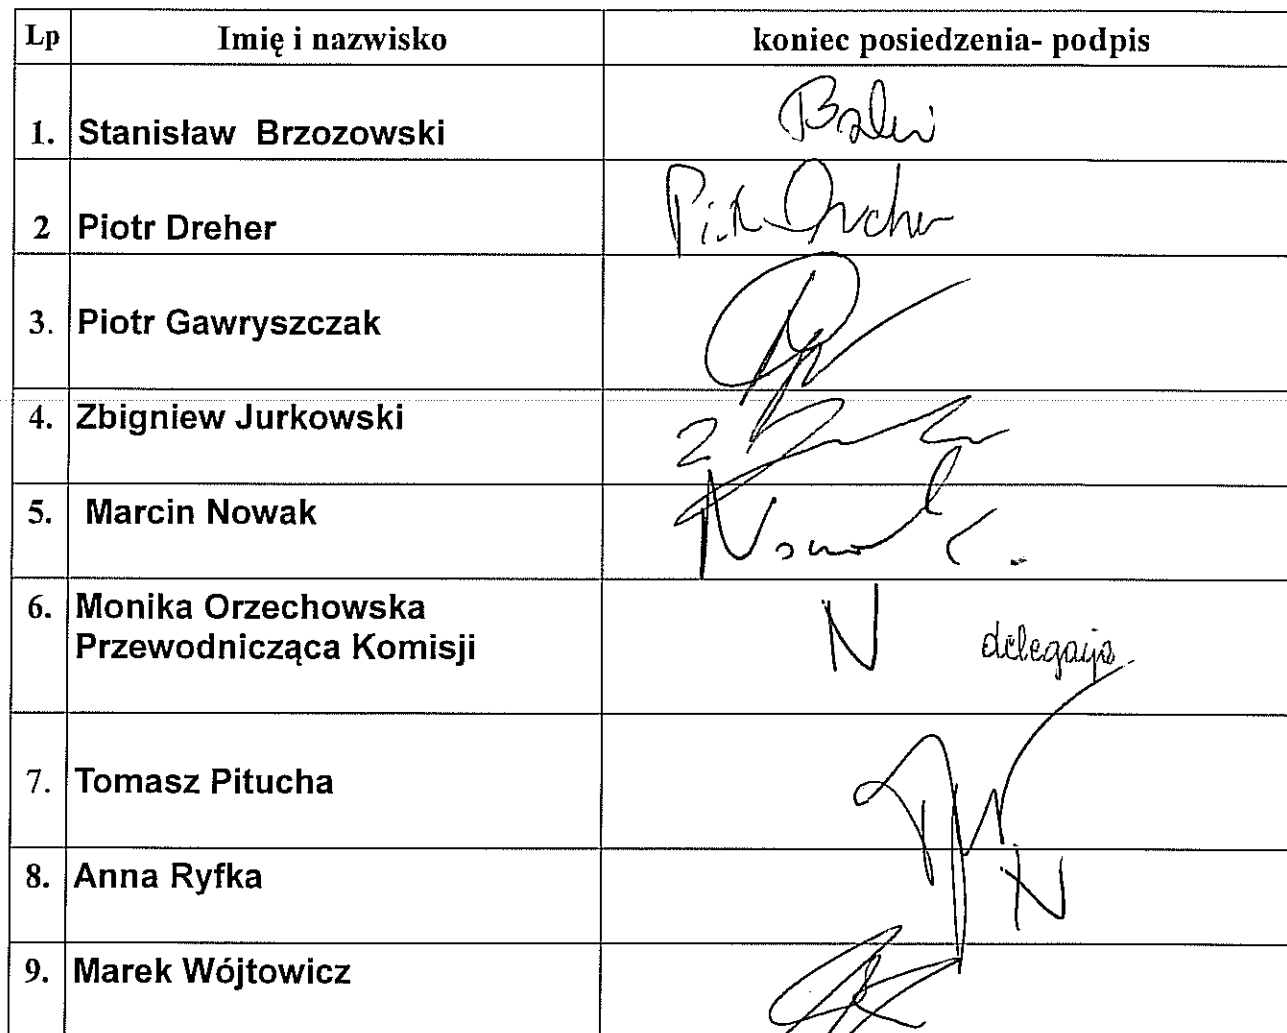 Lp Imię i nazwisko koniec posiedzenia- podpis
1. Stanisław Brzozowski
2 Piotr Dreher Piotr Dreher
3. Piotr Gawryszczak
4. Zbigniew Jurkowski
5. Marcin Nowak Nowak
6. Monika Orzechowska
Przewodnicząca Komisji N delegacja
7. Tomasz Pitucha
8. Anna Ryfka N
9. Marek Wójtowicz